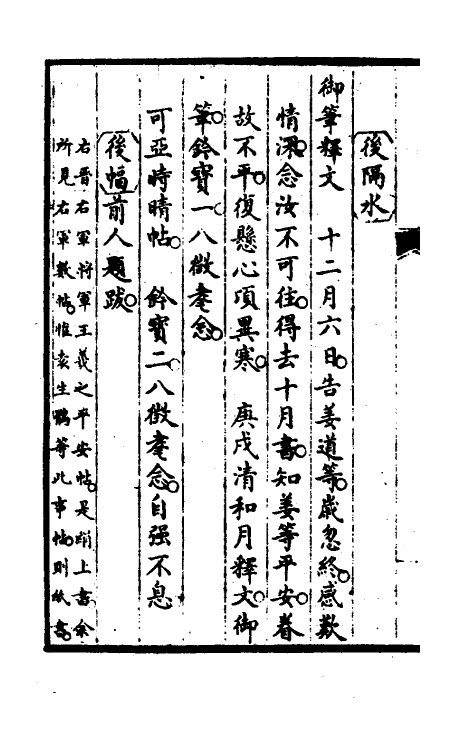 後隔水
御筆釋文　十二月六日告姜道等歲忽終感歎
情深念汝不可往得去十月書知姜等平安眷
故不平復懸心項異寒　庚戌清和月釋文御
筆鈐寶一八徵耄念
可亞時晴帖　鈐寶二八徵耄念自强不息
後幅前人題跋
右晋右軍將軍王羲之平安帖是硝上書余
所見右軍數帖惟袁生鸚等此事帖則紙書